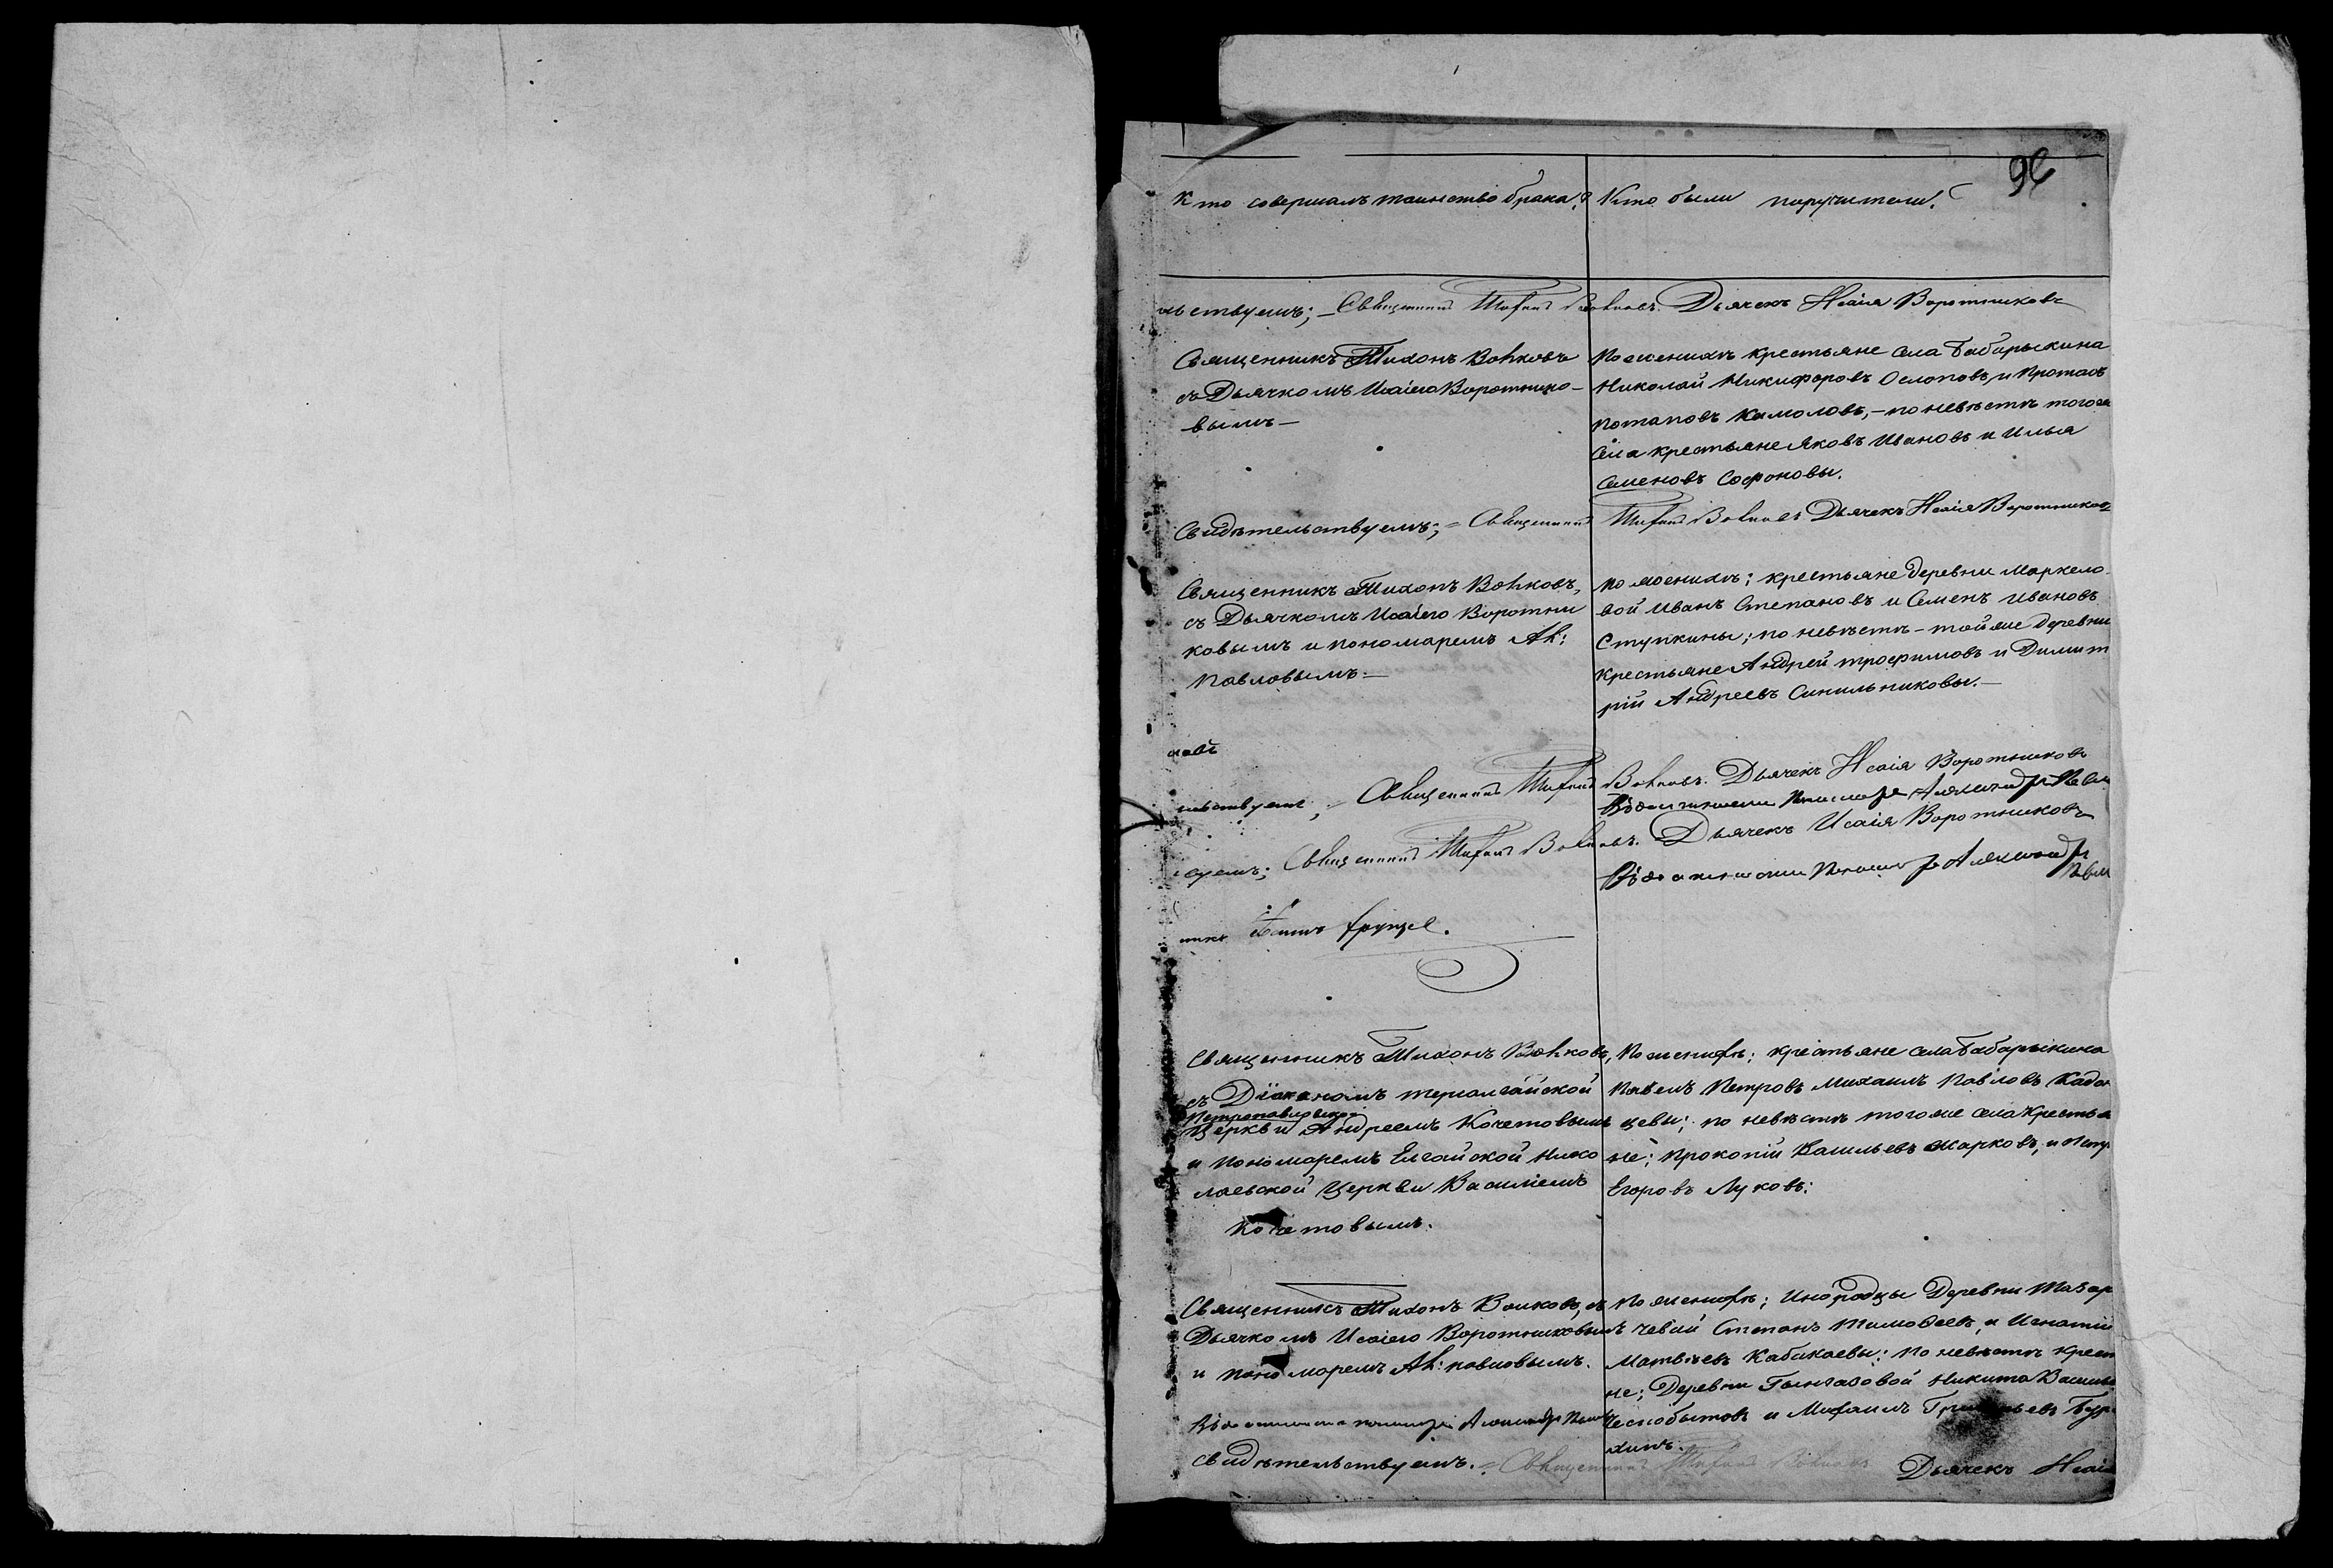 96
Кто совершалъ таинство брака? Кто были поручители?
льствуемъ; – Священникъ Тихонъ Волковъ. Дьячекъ Исаія Воротниковъ
Священникъ Тихонъ Волковъ
съ Дьячкомъ Исаіею Воротнико-
вымъ –
По женихѣ крестьяне села Бабарыкина
Николай Никифоровъ Ослоповъ, и Протасъ
Потаповъ Камоловъ, – по невѣстѣ тогоже
села крестьяне Яковъ Ивановъ и Илья
Семеновъ Софоновы.
Свидѣтельствуемъ; = Священникъ Тихонъ Волковъ Дьячекъ Исаія Воротниковъ
Священникъ Тихонъ Волковъ,
съ Дьячкомъ Исаіею Воротни
ковымъ и пономаремъ Ал:
Павловымъ. –
По женихѣ; крестьяне деревни Маркело
вой Иванъ Степановъ и Семенъ Ивановъ
Ступкины; по невѣстѣ – тойже деревни
крестьяне Андрей Трофимовъ и Димит
рій Андреевъ Синильниковы. –
льствуемъ; Священникъ Тихонъ Волковъ. Дьячекъ Исаія Воротниковъ
Пономарь Александръ Павл
вуемъ; Священникъ Тихонъ Волковъ. Дьячекъ Исаія Воротниковъ
Пономарь Александръ
Павл
Священникъ Тихонъ Волковъ,
съ Діакономъ
Петропавловской
Церкви Андреемъ Кочетовымъ
и пономаремъ Елгайской Нико
лаевской Церкви Василіемъ
Кочетовымъ.
По женихѣ; крестьяне села Бабарыкина
Павелъ Петровъ Михаилъ Павловъ Кадон
цевы; по невѣстѣ тогоже села крестья
не; Прокопій Васильевъ Марковъ, и Петр
Егоровъ Луковъ:
Священникъ Тихонъ Волковъ, съ
Дьячкомъ Исаіею Воротниковымъ
и пономаремъ Ал: Павловымъ.
По женихѣ; Инородцы Деревни Тазыр
чевой Степанъ Тимоѳеевъ, и Игнатій
Матвѣевъ Кабикаевы; По невѣстѣ крест
не; Деревни Гынгазовой Никита Василь
и Михаилъ Григорьевъ Бур
хинъ.
пономарь Александръ Павл
Свидѣтельствуемъ. = Священникъ Тихонъ Волковъ Дьячекъ Исаія